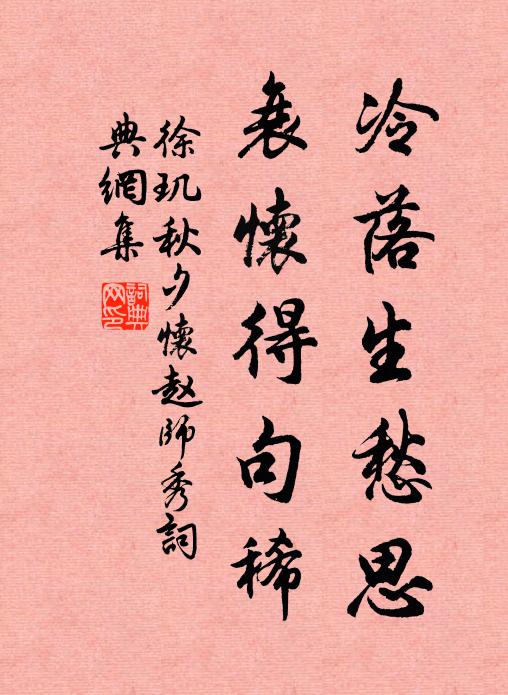 冷落生愁思
衰懷得句稀
徐玑秋夕懷赵師秀詞
典網集
詞典网印